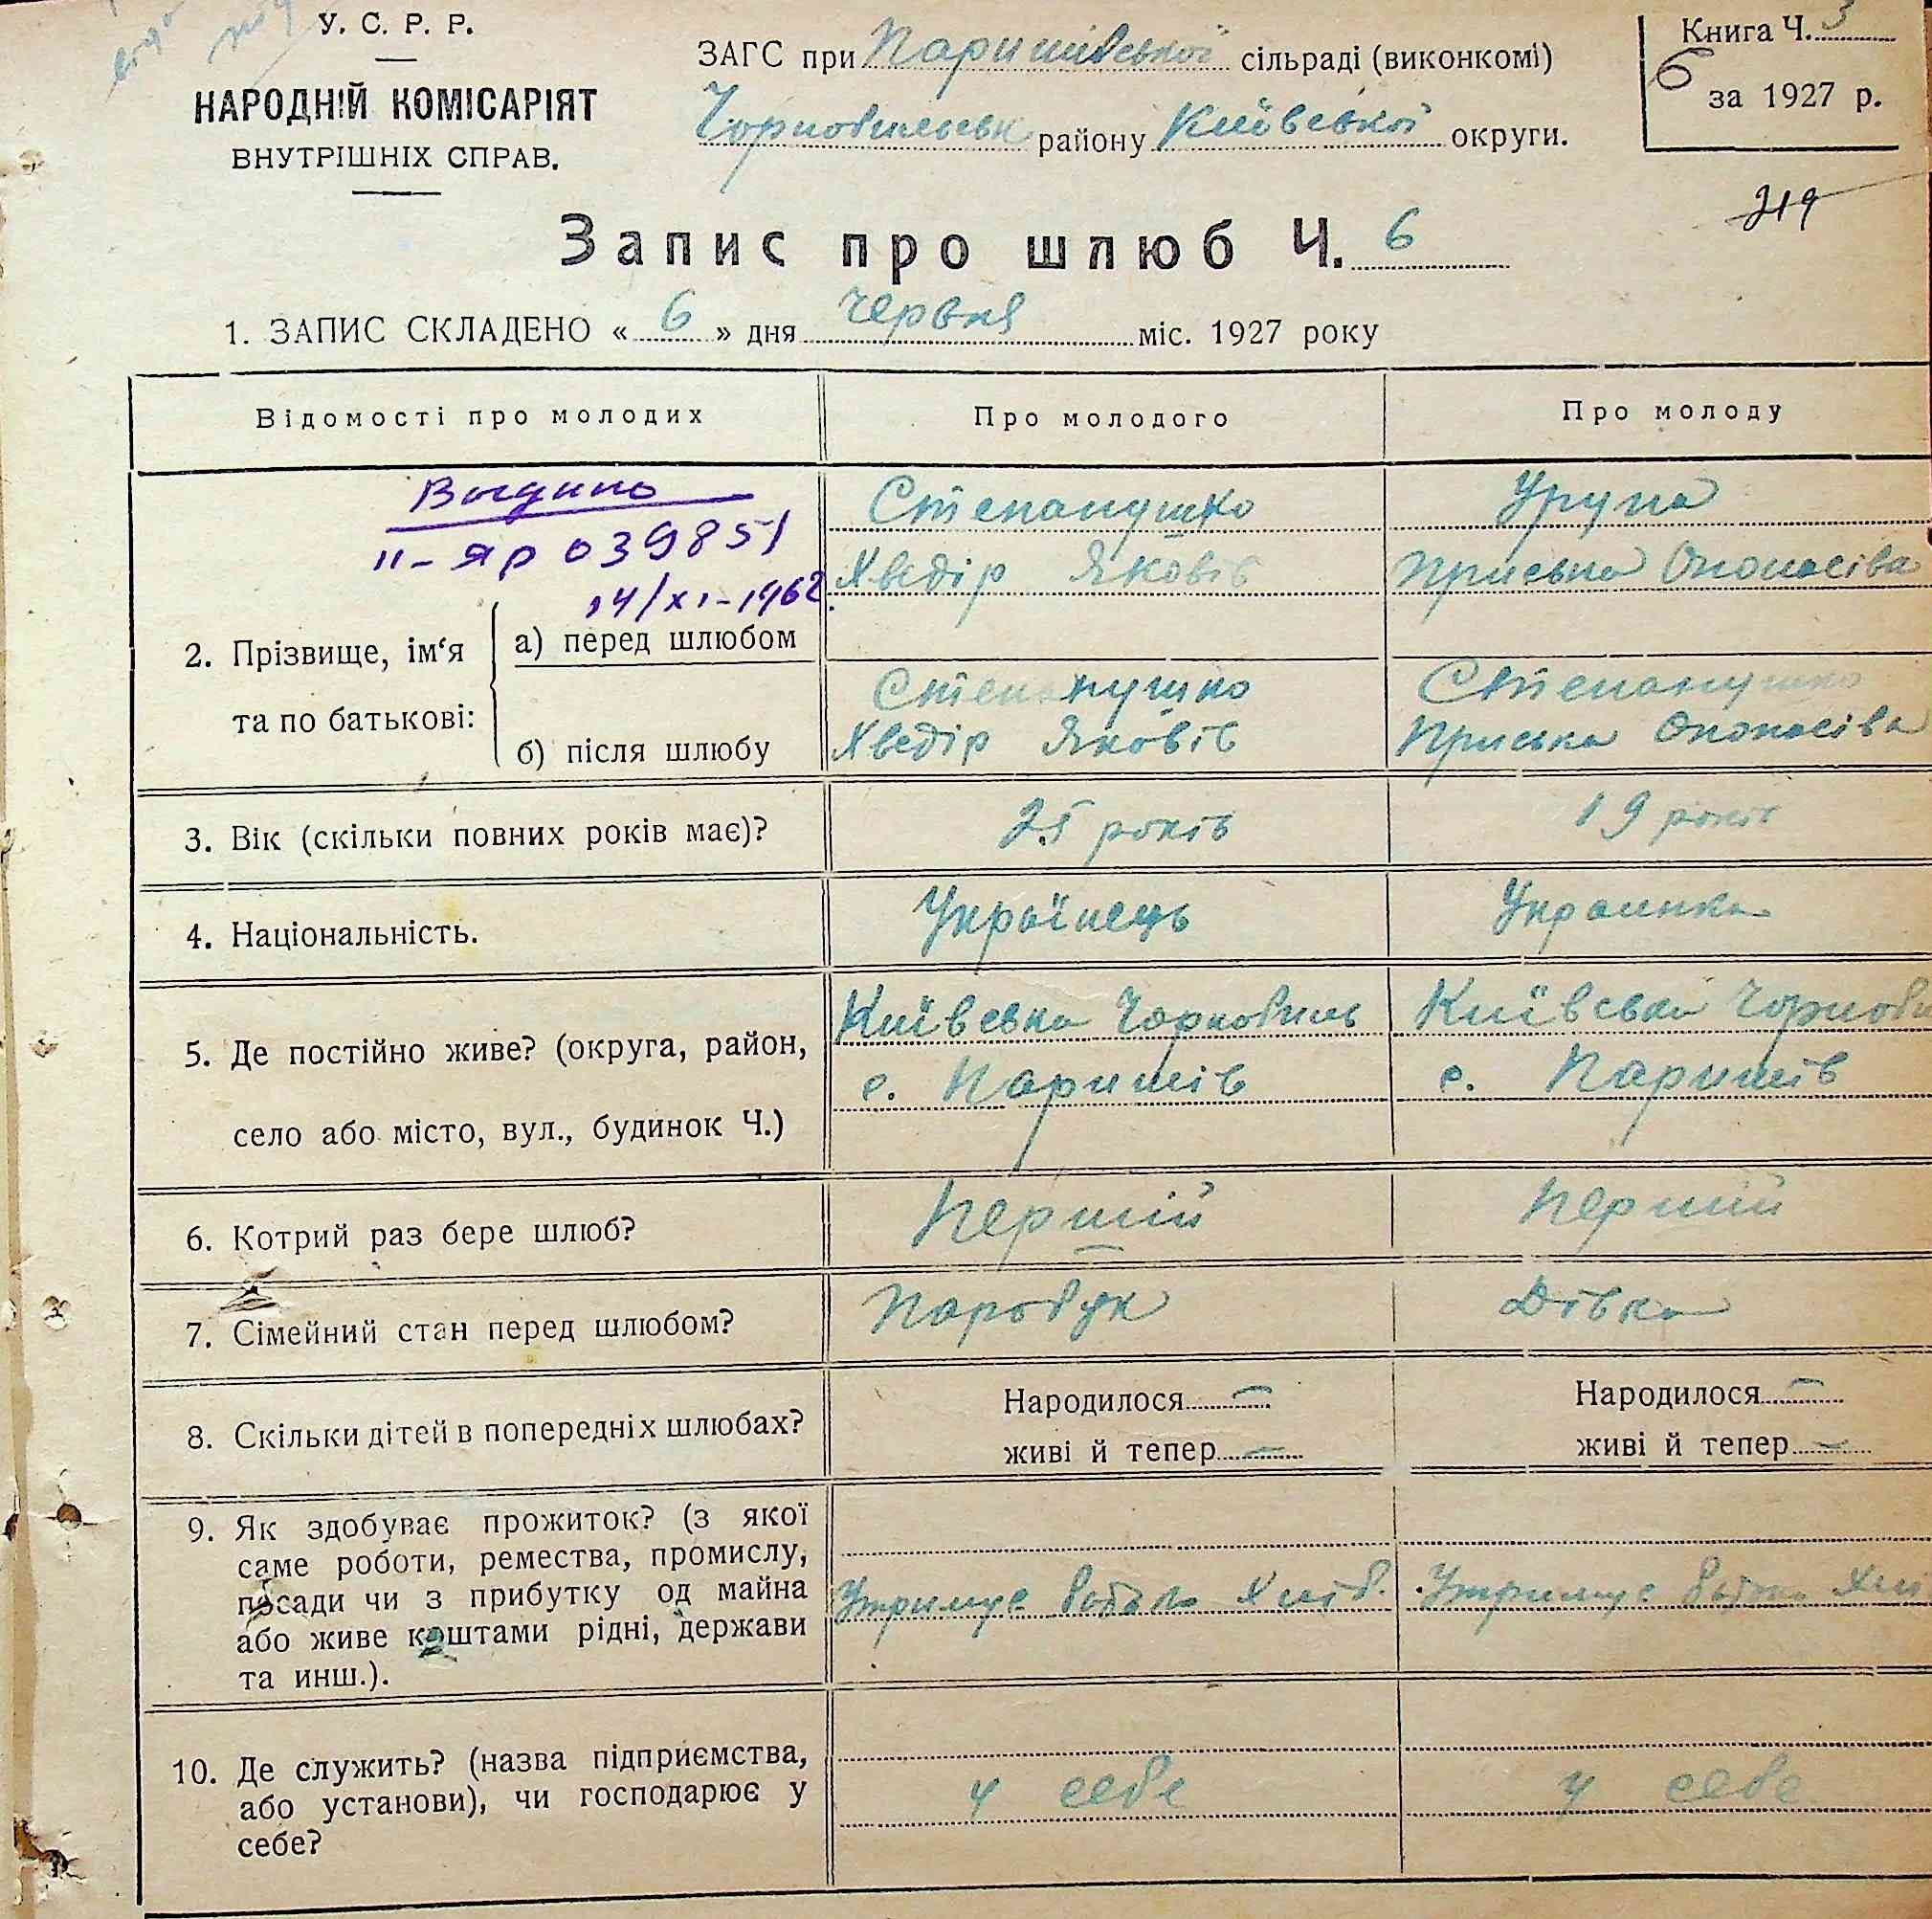 У. С. Р. Р.
НАРОДНІЙ КОМІСАРІЯТ
ВНУТРІШНІХ СПРАВ.
ЗАГС при Паришівської сільраді (виконкомі)
Чорнобильськ району Київської округи.
Книга Ч. 3
6 за 1927 р.
219
Запис про шлюб Ч. 6
1. ЗАПИС СКЛАДЕНО « 6 » дня червня міс. 1927 року
Відомості про молодих
Про молодого
Про молоду
II-ЯР 039851
14/XI-1962
2. Прізвище, ім‘я
та по батькові:
а) перед шлюбом
Степанушко
Хведір Яковів
Урупа
Приська Опонасіва
б) після шлюбу
Степанушко
Хведір Яковів
Степанушко
Приська Опонасіва
3. Вік (скільки повних років має)?
25 років
19 років
4. Національність.
Українець
Украинка
5. Де постійно живе? (округа, район,
село або місто, вул., будинок Ч.)
Київська Чорнобиль
с. Паришів
Київська Чорноби
с. Паришів
6. Котрий раз бере шлюб?
Першій
Першій
7. Сімейний стан перед шлюбом?
Паробук
Дівка
8. Скільки дітей в попередніх шлюбах?
Народилося —
живі й тепер —
Народилося —
живі й тепер —
9. Як здобуває прожиток? (з якої
саме роботи, ремества, промислу,
посади чи з прибутку од майна
або живе коштами рідні, держави
та инш.).
Утримує батько Хліб.
Утримує батько
10. Де служить? (назва підприємства,
або установи), чи господарює у
себе?
у себе
у себе